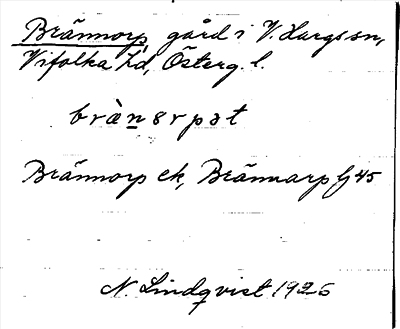 Brännorp, gård i V. Hargs sn,
Vifolka hd, Österg. l.
bràn̲ərpət
Brännorp ek, Brännarp G 45
N. Lindqvist 1925